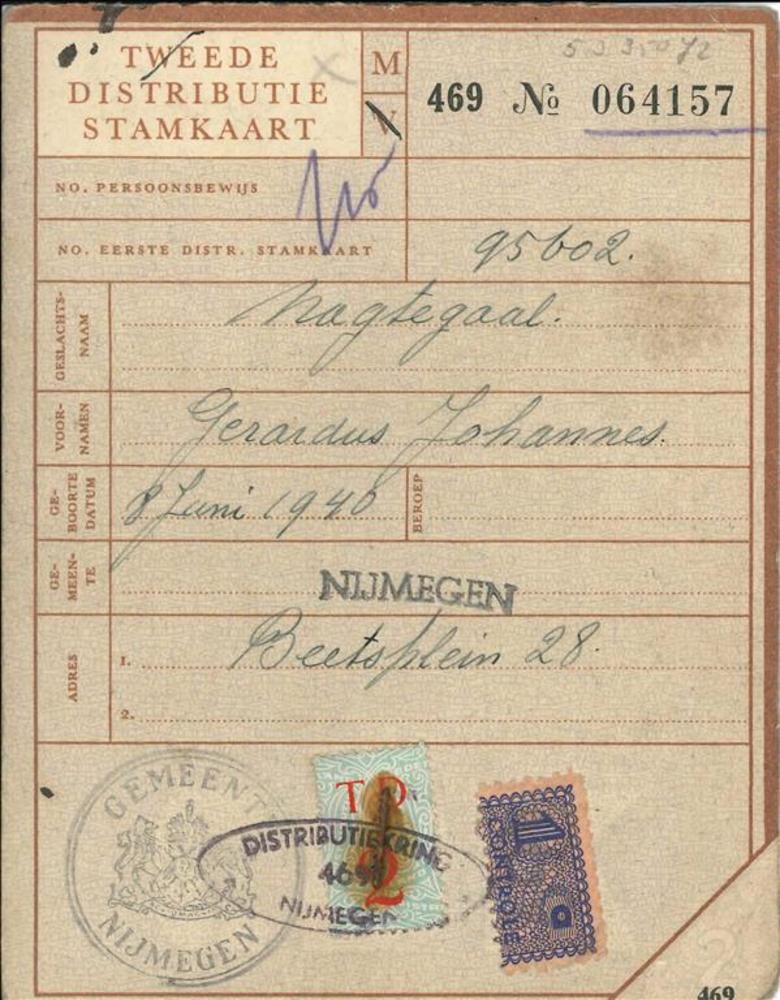 TWEEDE
DISTRIBUTIE
STAMKAART
M
V
469 № 064157
NO. PERSOONSBEWIJS
NO. EERSTE DISTR. STAMKAART
95602.
GESLACHTS-
NAAM
Nagtegaal.
VOOR-
NAMEN
Gerardus Johannes.
GE-
BOORTE
DATUM
8 Juni 1940
BEROEP
GE-
MEEN-
TE
NIJMEGEN
ADRES
1.
Beetsplein 28.
2.
GEMEENTE
NIJMEGEN
T D
2
DISTRIBUTIEKRING
469
NIJMEGEN
1
CONTROLE
D
469